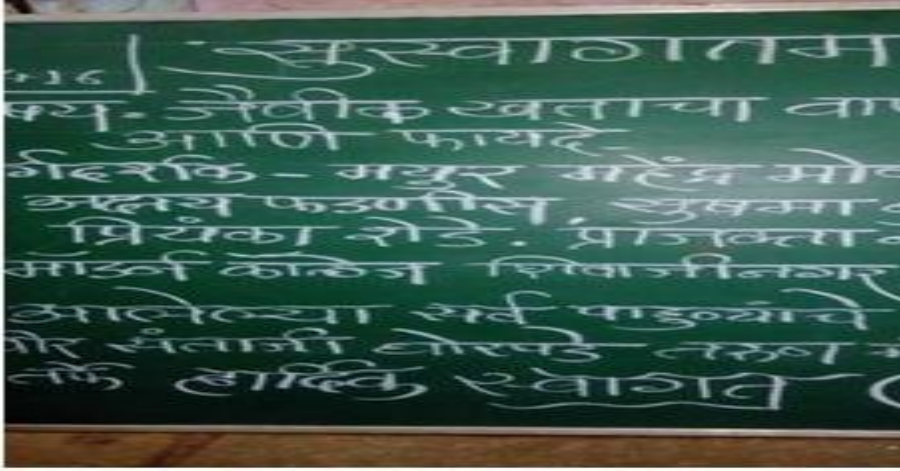 सुस्वागतम
जैवीक खताचा वाप
आणि फायदे
र्गदर्शक - मयुर महेंद्र मो
अक्षय फडणीस, सुषमा
प्रियंका शेडे. प्राजक्ता
मॉडर्न कॉलेज शिवाजीनगर
आलेल्या सर्व पाहुण्यांचे
संताजी घोरपडे तरुण
र्फे हार्दिक स्वागत (